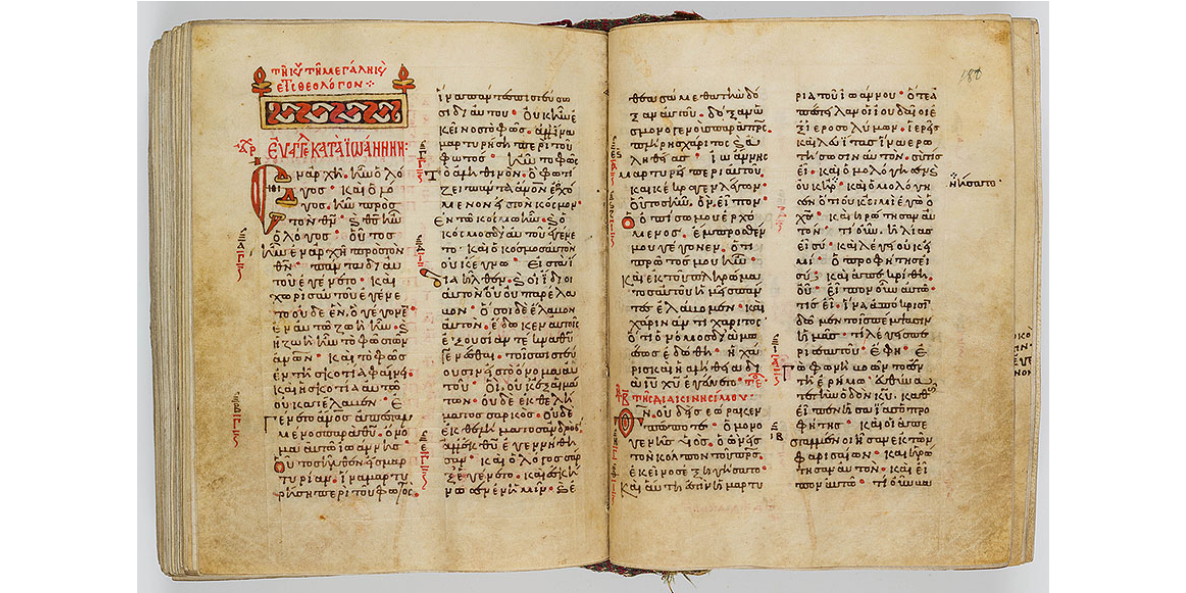 τῆ κυ τῆ μεγάλη κυ
εἰς θεολόγον
ΕΥΑΓΓΕ ΚΑΤΑ ἸΩΑΝΝΗΝ:
Ἐν ἀρχῆ ἦν ὁ λό
γος · καὶ ὁ λό
γος ἦν πρὸς
τὸν θν · καὶ θς ἦν
ὁ λόγος · οὗτος
ἦν ἐν ἀρχῆ πρὸς τὸν
θν · πάντα δι αυ
τοῦ ἐγένετο · καὶ
χωρὶς αὐτοῦ ἐγένε
το οὐδὲ ἓν, ὃ γέγονε ·
ἐν αὐτῶ ζωὴ ἦν · καὶ
ἡ ζωὴ ἦν τὸ φῶς τῶν
ἀνων · καὶ τὸ φῶς
ἐν τῆ σκοτία φαίνει ·
καὶ ἡ σκοτία αὐτὸ
οὐ κατέλαβεν · Ἐ
γένετο ἀνος ἀπεσταλ
μένος παρὰ θυ · ὄνο
μα αὐτῶ ἰωάννης ·
Οὗτος ἦλθεν εἰς μαρ
τυρίαν · ἵνα μαρτυ
ρήση περὶ τοῦ φωτός ·
ἵνα πάντες πιστεύσω
σι δι αὐτοῦ · οὐκ ἦν ἐ
κεῖνος τὸ φῶς · ἀλλ ἵνα
μαρτυρήση περὶ τοῦ
φωτός · ἦν τὸ φῶς
τὸ ἀληθινὸν · ὃ φωτί
ζει πάντα ἀνον ἐρχό
μενον εἰς τὸν κόσμον ·
Ἐν τῶ κόσμω ἦν · καὶ ὁ
κόσμος δι αὐτοῦ ἐγένε
το · καὶ ὁ κόσμος αὐτὸν
οὐκ ἔγνω · Εἰς τὰ ἴ
δια ἦλθεν · καὶ οἱ ἴδιοι
αὐτὸν οὐ παρέλα
βον · ὅσοι δὲ ἔλαβον
αὐτὸν · ἔδωκεν αὐτοῖς
ἐξουσίαν τέκνα θυ
γενέσθαι · τοῖς πιστεύ
ουσιν εἰς τὸ ὄνομα αὐ
τοῦ · Οἳ οὐκ ἐξ αἱμά
των · οὐδὲ ἐκ θελή
ματος σαρκὸς · οὐδὲ
ἐκ θελήματος ἀνδρὸς ·
ἀλλ ἐκ θυ ἐγεννήθη
σαν · καὶ ὁ λόγος σὰρ
ξ ἐγένετο · καὶ ἐσκή
νωσεν ἐν ἡμῖν · καὶ ἐ
θεασάμεθα τὴν δό
ξαν αὐτοῦ · δόξαν ὡς
μονογενοῦς παρὰ πρς ·
πλήρης χάριτος καὶ ἀ
ληθείας · Ἰωάννης
μαρτυρεῖ περὶ αὐτοῦ ·
καὶ κέκραγε λέγων ·
οὗτος ἦν, ὃν εἶπον ·
ὁ ὀπίσω μου ἐρχό
μενος · ἔμπροσθέν
μου γέγονεν · ὅτι
πρῶτός μου ἦν ·
καὶ ἐκ τοῦ πληρώμα
τος αὐτοῦ ἡμεῖς πάν
τες ἐλάβομεν · καὶ
χάριν ἀντὶ χάριτος ·
ὅτι ὁ νόμος διὰ μω
σέως ἐδόθη · ἡ χά
ρις καὶ ἡ ἀλήθεια δι
ὰ ιυ χυ ἐγένετο · τε
τῆ β τῆς διακινησίμου
Θν οὐδεὶς ἑώρακεν
πώποτε · ὁ μονο
γενὴς υἱὸς · ὁ ὢν εἰς
τὸν κόλπον τοῦ πρς ·
ἐκεῖνος ἐξηγήσατο ·
καὶ αὕτη ἐστὶν ἡ μαρτυ
ρία τοῦ ἰωάννου · ὅτε ἀ
πέστειλαν οἱ ἰουδαῖοι ἐ
ξ ἱεροσολύμων · ἱερεῖς
καὶ λευίτας ἵνα ἐρω
τήσωσιν αὐτὸν · σὺ τίς
εἶ · καὶ ὡμολόγησεν καὶ
οὐκ ἠρ · καὶ ὡμολόγη
σεν ὅτι οὐκ εἰμὶ ἐγὼ ὁ
χς · καὶ ἠρώτησαν αὐ
τὸν · τί οὖν · ἠλίας
εἶ σύ · καὶ λέγει οὐκ εἰ
μί · ὁ προφήτης εἶ
σύ · καὶ ἀπεκρίθη ·
οὔ · εἶπον οὖν αὐτῶ ·
τίς εἶ · ἵνα ἀπόκρισιν
δῶμεν τοῖς πέμψασιν
ἡμᾶς · τί λέγεις πε
ρὶ σεαυτοῦ · ἔφη · ἐ
γὼ φωνὴ βοῶντος ἐν
τῆ ἐρήμω · εὐθύνα
τε τὴν ὁδὸν κυ · καθὼς
εἶπεν ἡσαΐας ὁ προ
φήτης · καὶ οἱ ἀπε
σταλμένοι ἦσαν ἐκ τῶν
φαρισαίων · καὶ ἠρώ
τησαν αὐτὸν · καὶ εἶ
πον αὐτῶ · τί οὖν βα
ἠρνήσατο ·